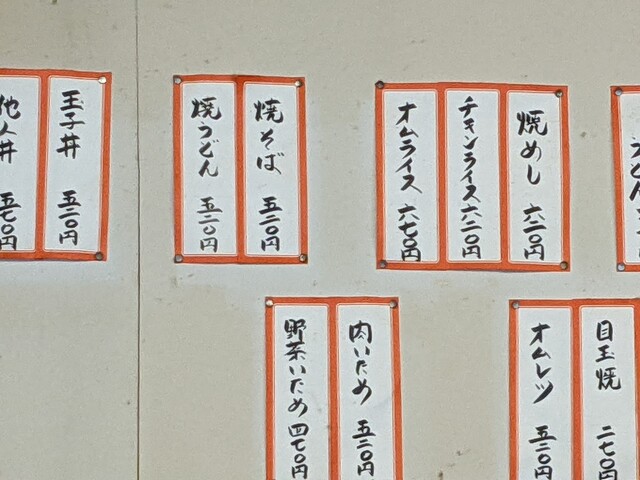 焼めし 六二〇円
チキンライス 六二〇円
オムライス 六七〇円
焼そば 五二〇円
焼うどん 五二〇円
玉子丼 五二〇円
他人丼 五七〇円
目玉焼 二七〇円
オムレツ 五二〇円
肉いため 五二〇円
野菜いため 四七〇円